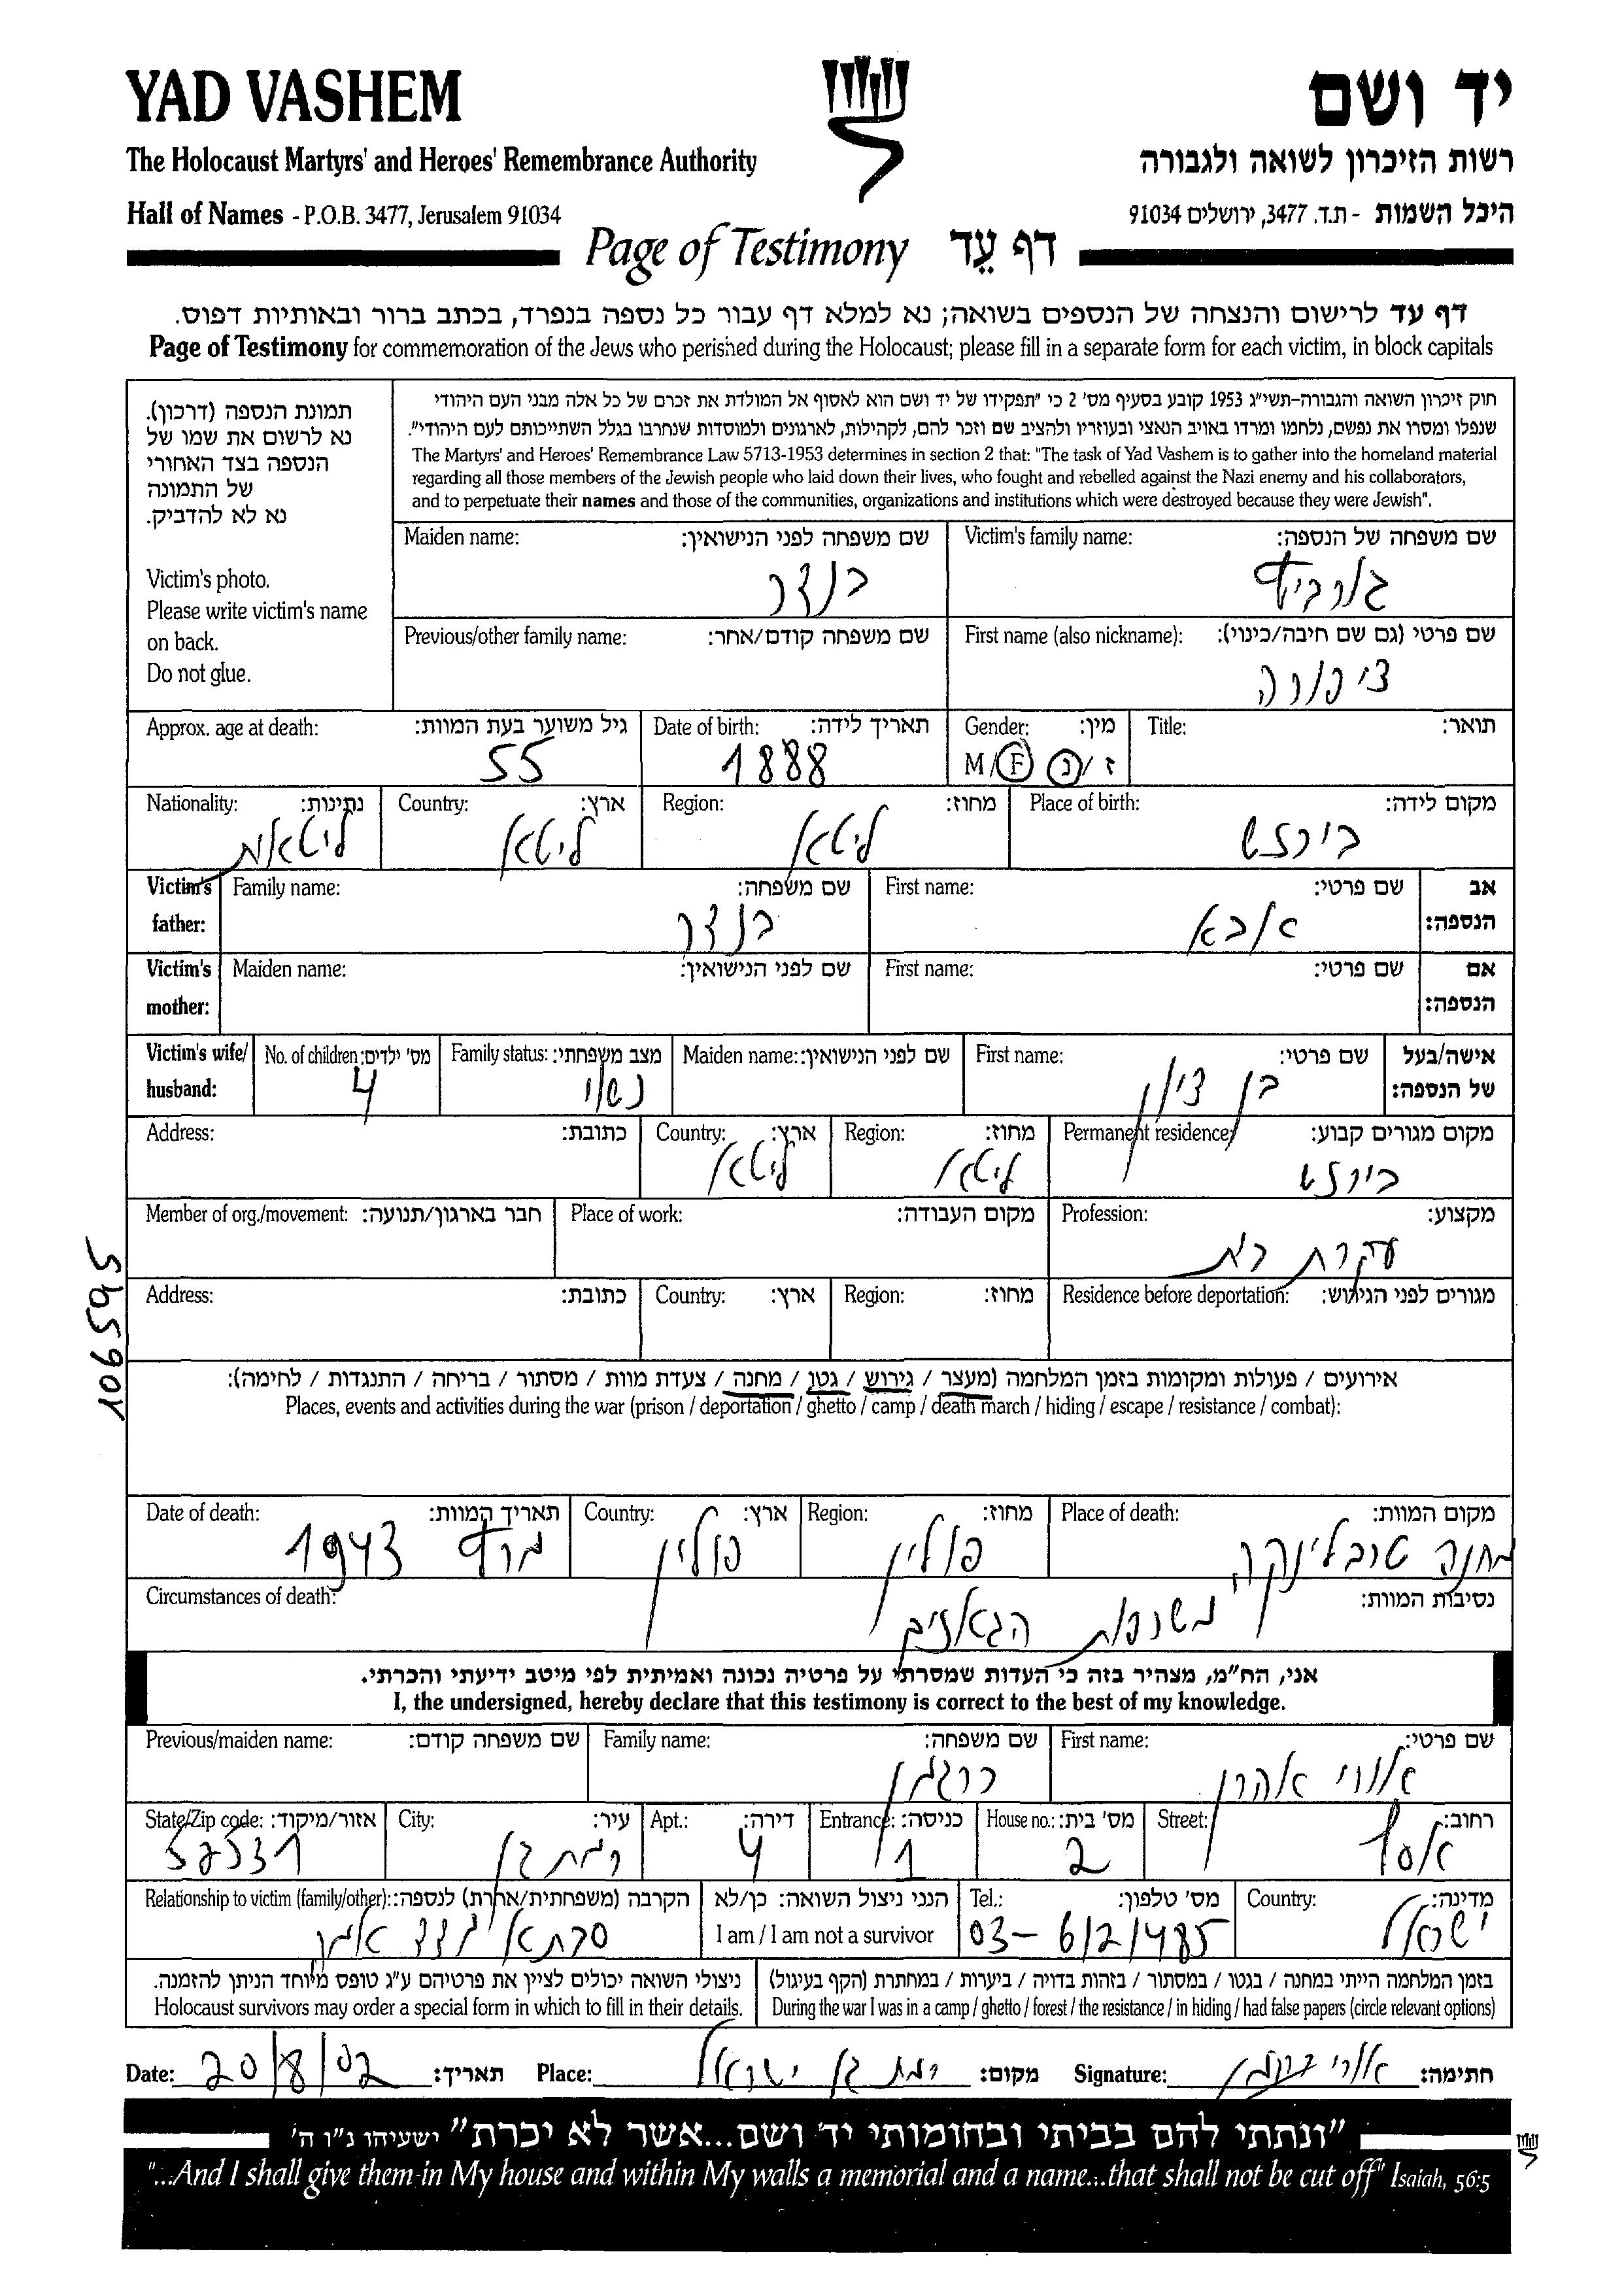 YAD VASHEM
יד ושם
The Holocaust Martyrs' and Heroes' Remembrance Authority
רשות הזיכרון לשואה ולגבורה
Hall of Names - P.O.B. 3477, Jerusalem 91034
היכל השמות - ת.ד. 3477, ירושלים 91034
Page of Testimony דף עֵד
דף עד לרישום והנצחה של הנספים בשואה; נא למלא דף עבור כל נספה בנפרד, בכתב ברור ובאותיות דפוס.
Page of Testimony for commemoration of the Jews who perished during the Holocaust; please fill in a separate form for each victim, in block capitals
תמונת הנספה (דרכון).
נא לרשום את שמו של
הנספה בצד האחורי
של התמונה
נא לא להדביק.
Victim's photo.
Please write victim's name
on back.
Do not glue.
חוק זיכרון השואה והגבורה-תשי"ג 1953 קובע בסעיף מס' 2 כי "תפקידו של יד ושם הוא לאסוף אל המולדת את זכרם של כל אלה מבני העם היהודי
שנפלו ומסרו את נפשם, נלחמו ומרדו באויב הנאצי ובעוזריו ולהציב שם וזכר להם, לקהילות, לארגונים ולמוסדות שנחרבו בגלל השתייכותם לעם היהודי".
The Martyrs' and Heroes' Remembrance Law 5713-1953 determines in section 2 that: "The task of Yad Vashem is to gather into the homeland material
regarding all those members of the Jewish people who laid down their lives, who fought and rebelled against the Nazi enemy and his collaborators,
and to perpetuate their names and those of the communities, organizations and institutions which were destroyed because they were Jewish".
Victim's family name: שם משפחה של הנספה:
Maiden name: שם משפחה לפני הנישואין:
בנדר
First name (also nickname): שם פרטי (גם שם חיבה/כינוי):
ציפורה
Previous/other family name: שם משפחה קודם/אחר:
Title: תואר:
Gender: מין:
M/F ז/נ
Date of birth: תאריך לידה:
1888
Approx. age at death: גיל משוער בעת המוות:
55
Place of birth: מקום לידה:
בירזש
Region: מחוז:
ליטא
Country: ארץ:
ליטא
Nationality: נתינות:
ליטאית
Victim's father: אב הנספה:
First name: שם פרטי:
אבא
Family name: שם משפחה:
בנדר
Victim's mother: אם הנספה:
First name: שם פרטי:
Maiden name: שם לפני הנישואין:
Victim's wife/husband: אישה/בעל של הנספה:
First name: שם פרטי:
בן ציון
Maiden name: שם לפני הנישואין:
Family status: מצב משפחתי:
נשוי
No. of children: מס' ילדים:
4
Permanent residence: מקום מגורים קבוע:
בירזש
Region: מחוז:
ליטא
Country: ארץ:
ליטא
Address: כתובת:
Profession: מקצוע:
עקרת בית
Place of work: מקום העבודה:
Member of org./movement: חבר בארגון/תנועה:
Residence before deportation: מגורים לפני הגירוש:
Region: מחוז:
Country: ארץ:
Address: כתובת:
106595
אירועים / פעולות ומקומות בזמן המלחמה (מעצר / גירוש / גטו / מחנה / צעדת מוות / מסתור / בריחה / התנגדות / לחימה):
Places, events and activities during the war (prison / deportation / ghetto / camp / death march / hiding / escape / resistance / combat):
Place of death: מקום המוות:
מחנה טרבלינקה
Region: מחוז:
פולין
Country: ארץ:
פולין
Date of death: תאריך המוות:
חורף 1943
Circumstances of death: נסיבות המוות:
משרפות הגאזים
אני, הח"מ, מצהיר בזה כי העדות שמסרתי על פרטיה נכונה ואמיתית לפי מיטב ידיעתי והכרתי.
I, the undersigned, hereby declare that this testimony is correct to the best of my knowledge.
First name: שם פרטי:
אורי אהרן
Family name: שם משפחה:
ברגמן
Previous/maiden name: שם משפחה קודם:
Street: רחוב:
House no.: מס' בית:
2
Entrance: כניסה:
1
Apt.: דירה:
4
City: עיר:
רמת גן
State/Zip code: אזור/מיקוד:
52531
Country: מדינה:
ישראל
Tel.: מס' טלפון:
03-6121485
הנני ניצול השואה: כן/לא
I am / I am not a survivor
Relationship to victim (family/other): הקרבה (משפחתית/אחרת) לנספה:
סבתא מצד אמי
בזמן המלחמה הייתי במחנה / בגטו / במסתור / בזהות בדויה / ביערות / במחתרת (הקף בעיגול)
During the war I was in a camp / ghetto / forest / the resistance / in hiding / had false papers (circle relevant options)
ניצולי השואה יכולים לציין את פרטיהם ע"ג טופס מיוחד הניתן להזמנה.
Holocaust survivors may order a special form in which to fill in their details.
Date: 20/8/02 תאריך: Place: רמת גן ישראל מקום: Signature: אורי ברגמן חתימה:
"ונתתי להם בביתי ובחומותי יד ושם...אשר לא יכרת" ישעיהו נ"ו ה'
"...And I shall give them in My house and within My walls a memorial and a name...that shall not be cut off" Isaiah, 56:5